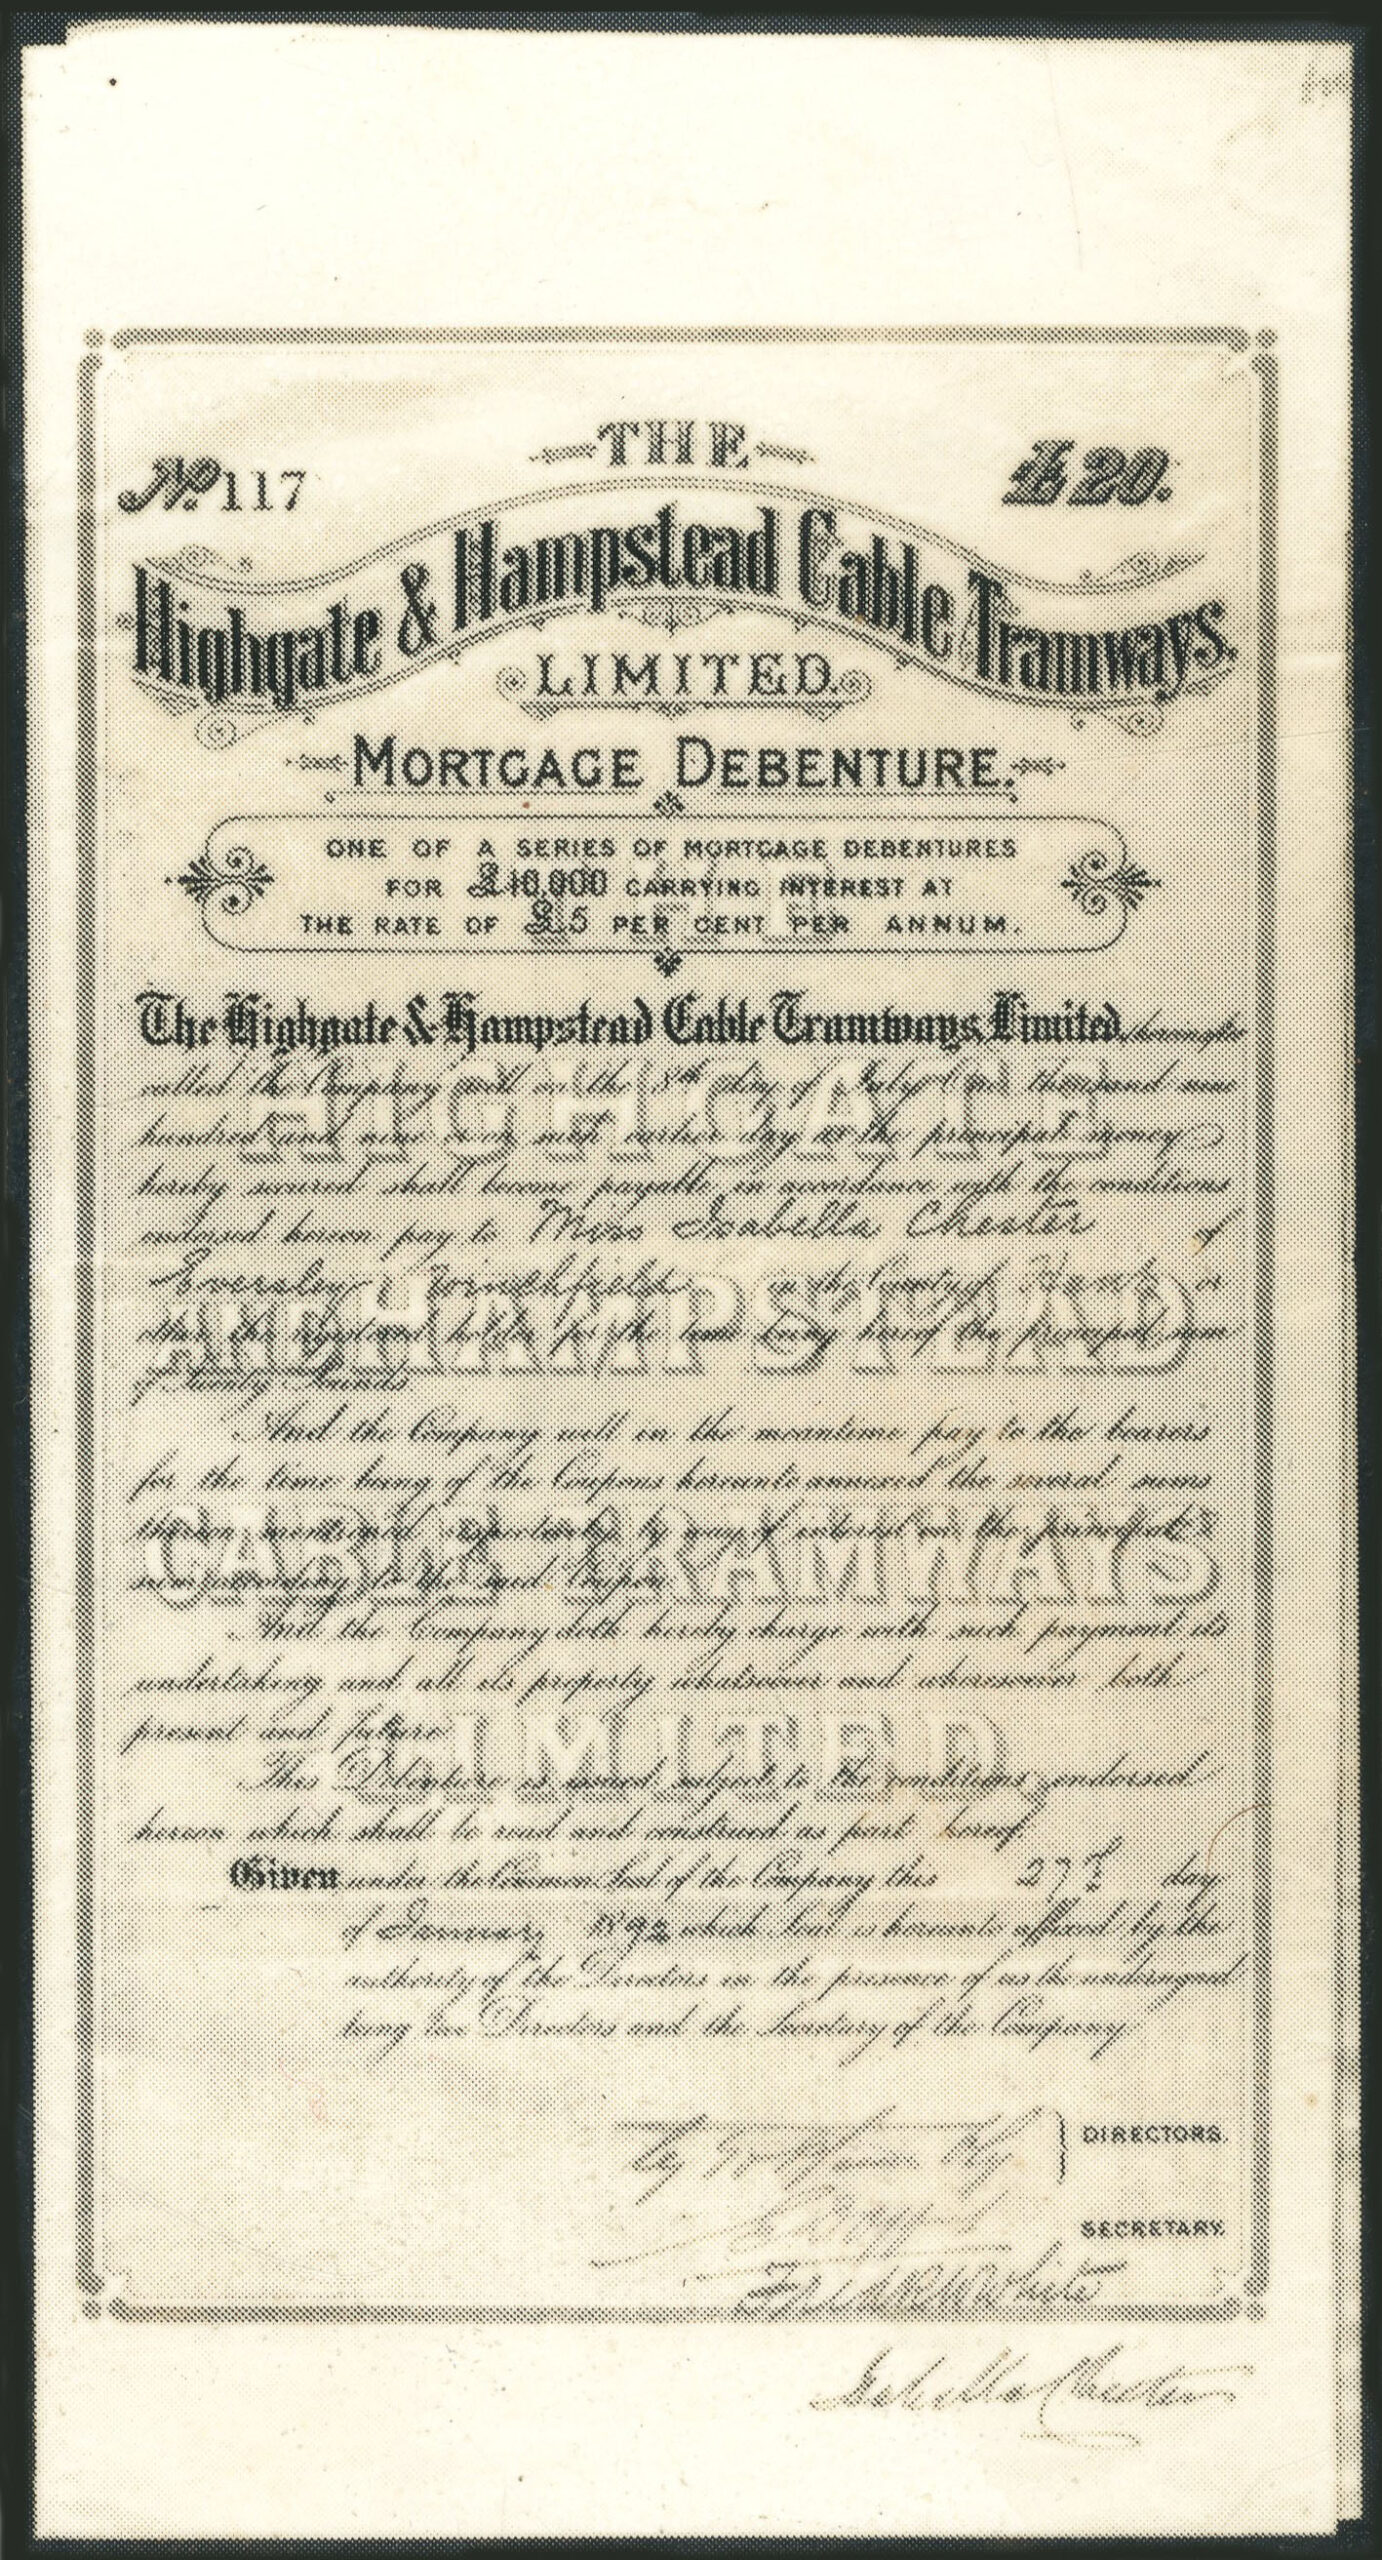 THE
No. 117
£20.
Highgate & Hampstead Cable Tramways.
LIMITED.
MORTGAGE DEBENTURE.
ONE OF A SERIES OF MORTGAGE DEBENTURES
FOR £10,000 CARRYING INTEREST AT
THE RATE OF £5 PER CENT PER ANNUM.
The Highgate & Hampstead Cable Tramways, Limited hereinafter
called the Company will on the 8th day of July One thousand nine
hundred and nine or on such earlier day as the principal money
hereby secured shall become payable in accordance with the conditions
endorsed hereon pay to Miss Isabella Chester of
Eversley Winchfield in the County of Hants or
other the registered holder for the time being hereof the principal sum
of Twenty Pounds.
And the Company will in the meantime pay to the bearers
for the time being of the Coupons hereunto annexed the several sums
thereon mentioned respectively by way of interest on the principal
sum according to the said Coupons.
And the Company doth hereby charge with such payment its
undertaking and all its property whatsoever and wheresoever both
present and future.
This Debenture is issued subject to the conditions endorsed
hereon which shall be read and construed as part hereof.
Given under the Common Seal of the Company this 27th day
of January 1892 which Seal is hereunto affixed by the
authority of the Directors in the presence of us the undersigned
being two Directors and the Secretary of the Company.
DIRECTORS.
SECRETARY.
Isabella Chester
HIGHGATE
AND HAMPSTEAD
CABLE TRAMWAYS
LIMITED